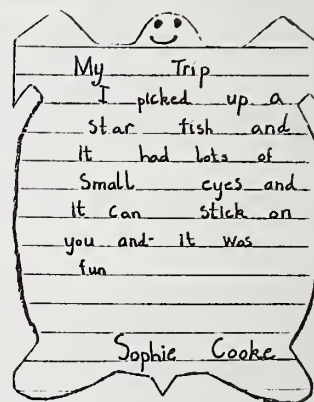 My Trip
I picked up a
star fish and
it had lots of
Small eyes and
it can stick on
you and it was
fun
Sophie Cooke